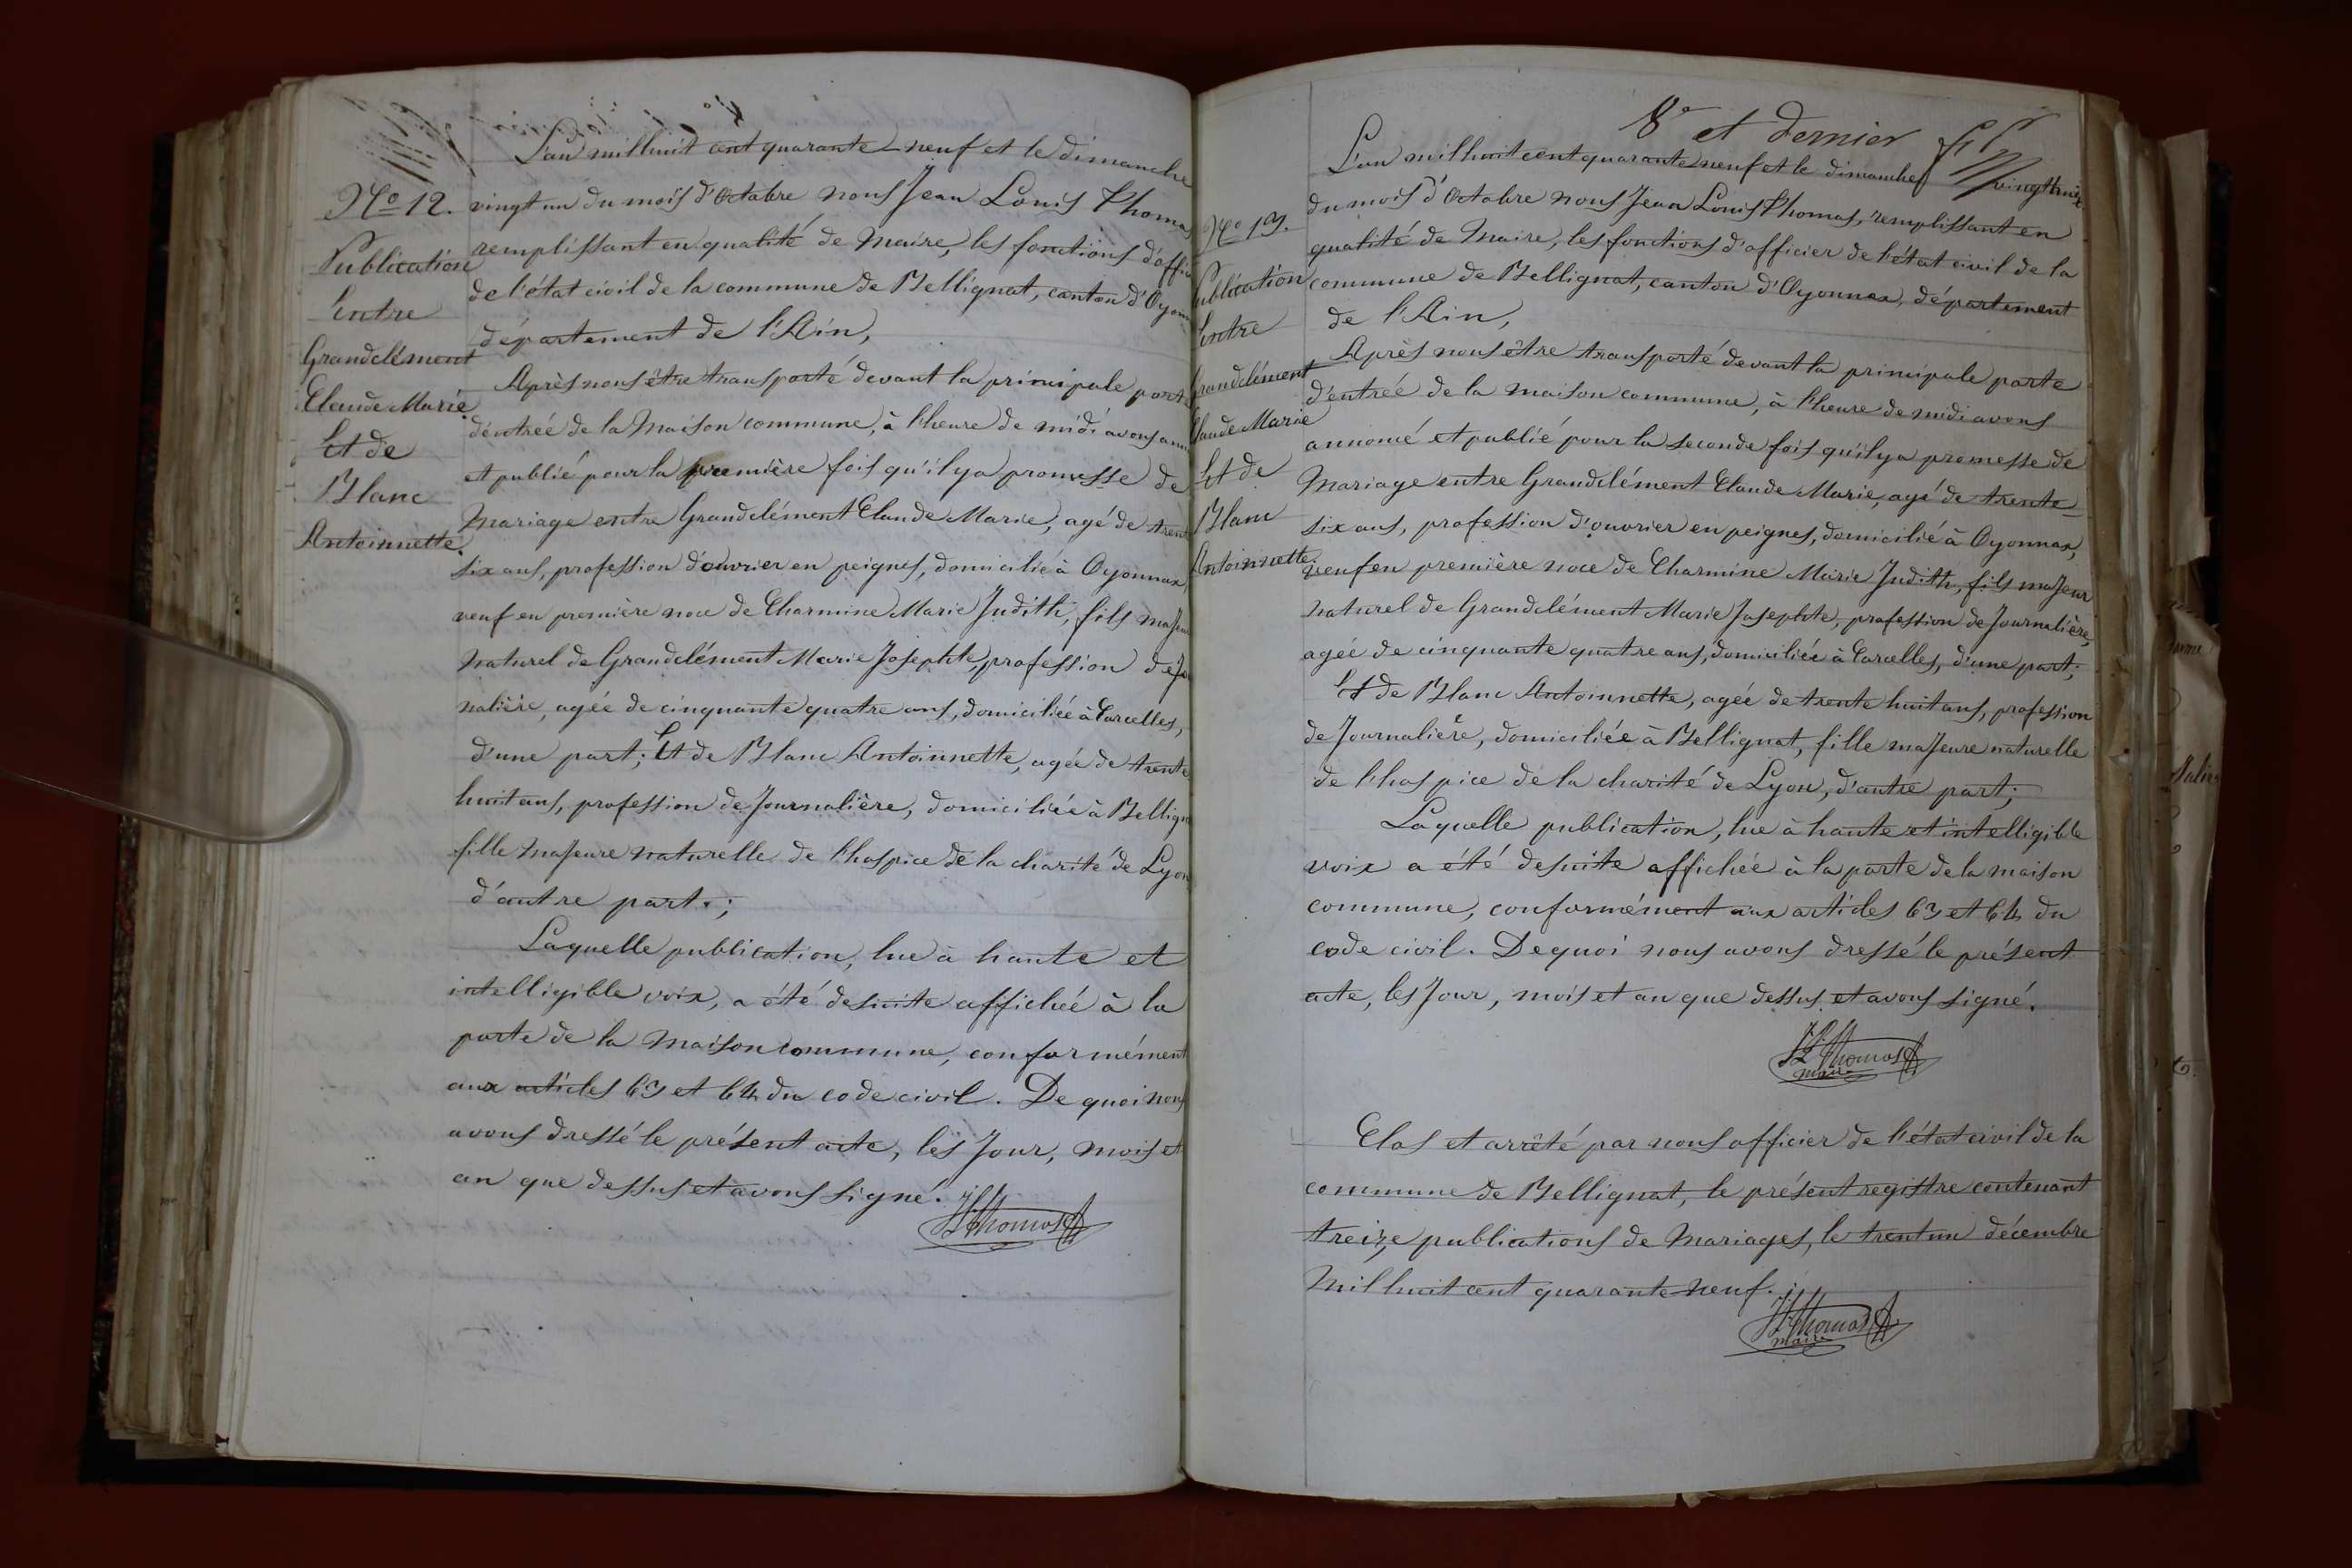 No 12.
Publication
Entre
Grandclément
Claude Marie
Et de
Blanc
Antoinnette.
L'an mil huit cent quarante-neuf et le dimanche
vingt un du mois d'Octobre nous Jean Louis Thomas
remplissant en qualité de Maire, les fonctions d'offi
de l'état civil de la commune de Bellignat, canton d'Oyon
département de l'Ain,
Après nous être transporté devant la principale porte
d'entrée de la Maison commune, à l'heure de midi avons ann
et publié pour la première fois qu'il y a promesse de
Mariage entre Grandclément Claude Marie, agé de trent
six ans, profession d'ouvrier en peignes, domicilié à Oyonnax,
veuf en première noce de Charmine Marie Judith, fils majeur
naturel de Grandclément Marie Josephte, profession de Jo
nalière, agée de cinquante quatre ans, domiciliée à Carcelles,
d'une part; Et de Blanc Antoinnette, agée de trente
huit ans, profession de Journalière, domiciliée à Bellign
fille majeure naturelle de l'hospice de la charité de Lyon
d'autre part.;
Laquelle publication, lue à haute et
intelligible voix, a été desuite affichée à la
porte de la Maison commune, conformément
aux articles 63 et 64 du code civil. De quoi nous
avons dressé le présent acte, les Jour, mois et
an que dessus et avons signé.
JL Thomas
8e et dernier
No 13.
Publication
Entre
Grandclément
Claude Marie
Et de
Blanc
Antoinnette.
L'an mil huit cent quarante neuf et le dimanche vingt huit
du mois d'Octobre nous Jean Louis Thomas, remplissant en
qualité de Maire, les fonctions d'officier de l'état civil de la
commune de Bellignat, canton d'Oyonnax, département
de l'Ain,
Après nous être transporté devant la principale porte
d'entrée de la maison commune, à l'heure de midi avons
annoncé et publié pour la seconde fois qu'il y a promesse de
Mariage entre Grandclément Claude Marie, agé de trente-
six ans, profession d'ouvrier en peignes, domicilié à Oyonnax,
veuf en première noce de Charmine Marie Judith, fils majeur
naturel de Grandclément Marie Josephte, profession de Journalière,
agée de cinquante quatre ans, domiciliée à Carcelles, d'une part;
Et de Blanc Antoinnette, agée de trente huit ans, profession
de Journalière, domiciliée à Bellignat, fille majeure naturelle
de l'hospice de la charité de Lyon, d'autre part;
Laquelle publication, lue à haute et intelligible
voix a été desuite affichée à la porte de la maison
commune, conformément aux articles 63 et 64 du
code civil. De quoi nous avons dressé le présent
acte, les Jour, mois et an que dessus et avons signé.
JL Thomas
maire
Clos et arrêté par nous officier de l'état civil de la
commune de Bellignat, le présent registre contenant
treize publications de Mariages, le trent un décembre
Mil huit cent quarante-neuf.
JL Thomas
maire